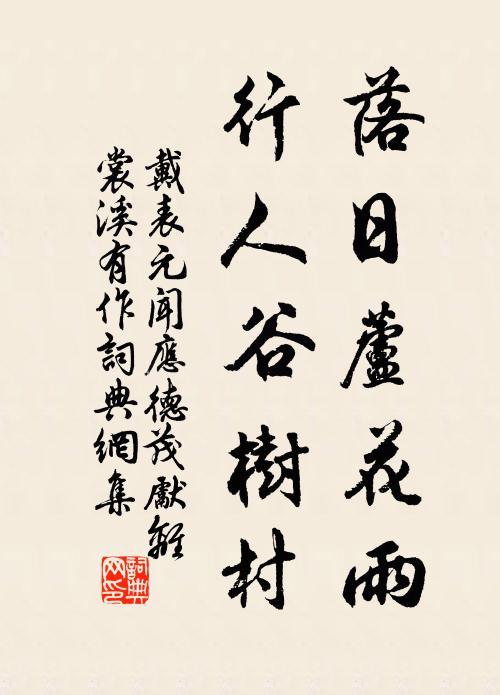 落日蘆花雨
行人谷樹村
戴表元聞應德茂獻離
裳溪有作詞典網集
詞典网印